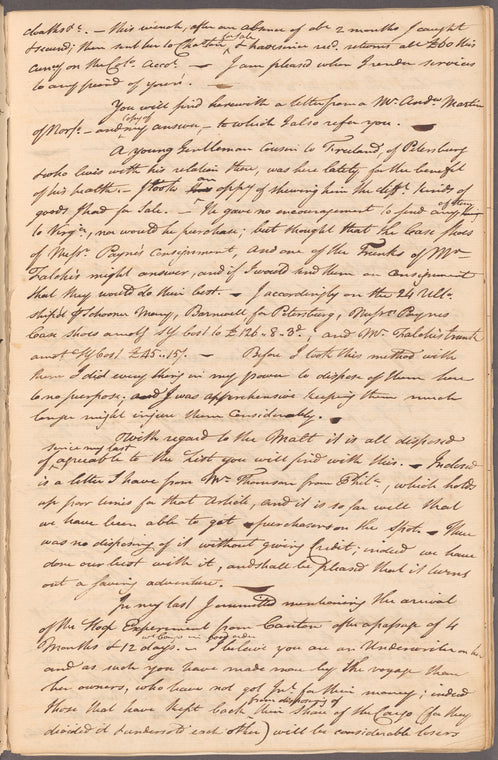 cloaths &c. – this wench, after an absence of abt. 2 months I caught
& secured; then sent her to Cha.Ton for Sale, & have since recd. returns abt £60 this
Curcy on the Est. Accot. – I am pleased when I render services
to any friend of yours. –
You will find herewith a letter from a Mr. Andw. Martin
of Norfo. – and copy of my answer – to which I also refer you. –
A young Gentleman Cousin to Freeland of Petersburg
& who lives with his relation there, was here lately for the benefit
of his health. – I took an oppy of shewing him the difft. kinds of
goods I had for Sale. – He gave no encouragement to send any of them
to Virga., nor would he purchase; but thought that the Case Shoes
of Messr. Payne's Consignment, and one of the Trunks of Mr.
Falch's might answer, and if I would send them on Consignment
that they would do their best. – I accordingly on the 24 Ullo.
shipd. p Schooner Mary, Barnwell for Petersburg, Messrs. Paynes
Case shoes amotg Sy Cost to £126-8-3d, and Mr. Falch's trunk
amot Sy Cost £45.15/. – Before I took this method with
them I did every thing in my power to dispose of them here
to no purpose; and I was apprehensive keeping them much
longer might injure them Considerably. –
With regard to the Malt it is all disposed
of since my last agreeable to the List you will find with this. – Inclosed
is a letter I have from Mr. Thomson from Phila., which holds
up poor times for that Article, and it is so far well that
we have been able to get purchasers on the spot. – There
was no disposing of it without giving Credit; indeed we have
done our best with it, and shall be pleased that it turns
out a saving adventure. –
In my last I ommitted mentioning the arrival
of the Sloop Experiment from Canton after a passage of 4
Months & 12 days. – wt Cargo in good order I believe you are an Underwriter on her
and as such you have made more by the voyage than
her owners, who have not got Int. for their money; indeed
those that have kept back from disposing of their Share of the Cargo (for they
divided it & undersold each other) will be considerable losers